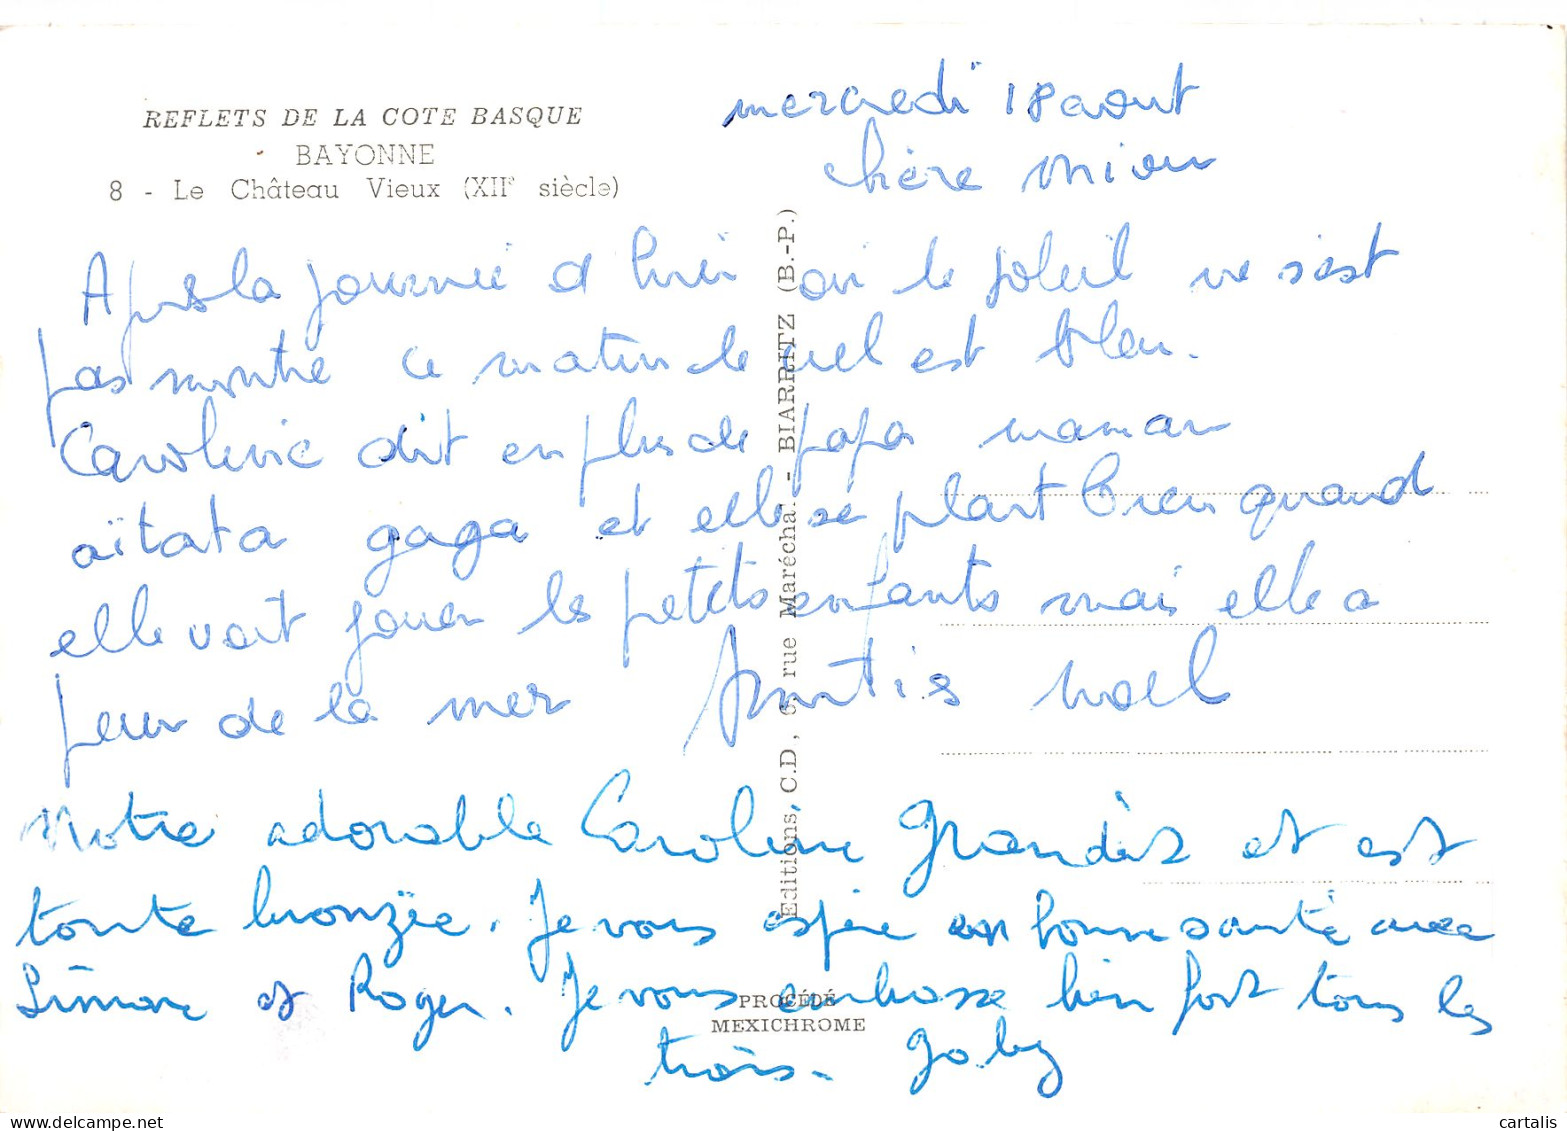 REFLETS DE LA COTE BASQUE
BAYONNE
8 - Le Château Vieux (XIIe siècle)
mercredi 18 aout
chère
Après la journée d hier où le soleil ne s'est
pas montré ce matin le ciel est bleu.
Caroline dit en plus de papa maman
aïtata gaga et elle se plait bien quand
elle voit jouer les petits enfants mais elle a
peur de la mer Noël
Notre adorable Caroline grandit et est
toute bronzée. Je vous espère en bonne santé avec
Simone et Roger. Je vous embrasse bien fort tous les
trois. Goby
Editions, C.D., 6, rue Maréchal - BIARRITZ (B.-P.)
PROCÉDÉ
MEXICHROME
cartalis